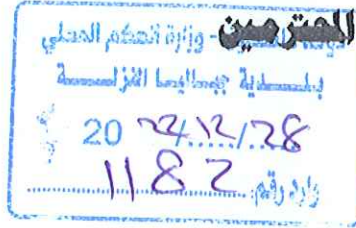 المحترمين
- وزارة الحكم المحلي
بلدية جباليا النزلة
20 22/12/28
وارد رقم: 1182